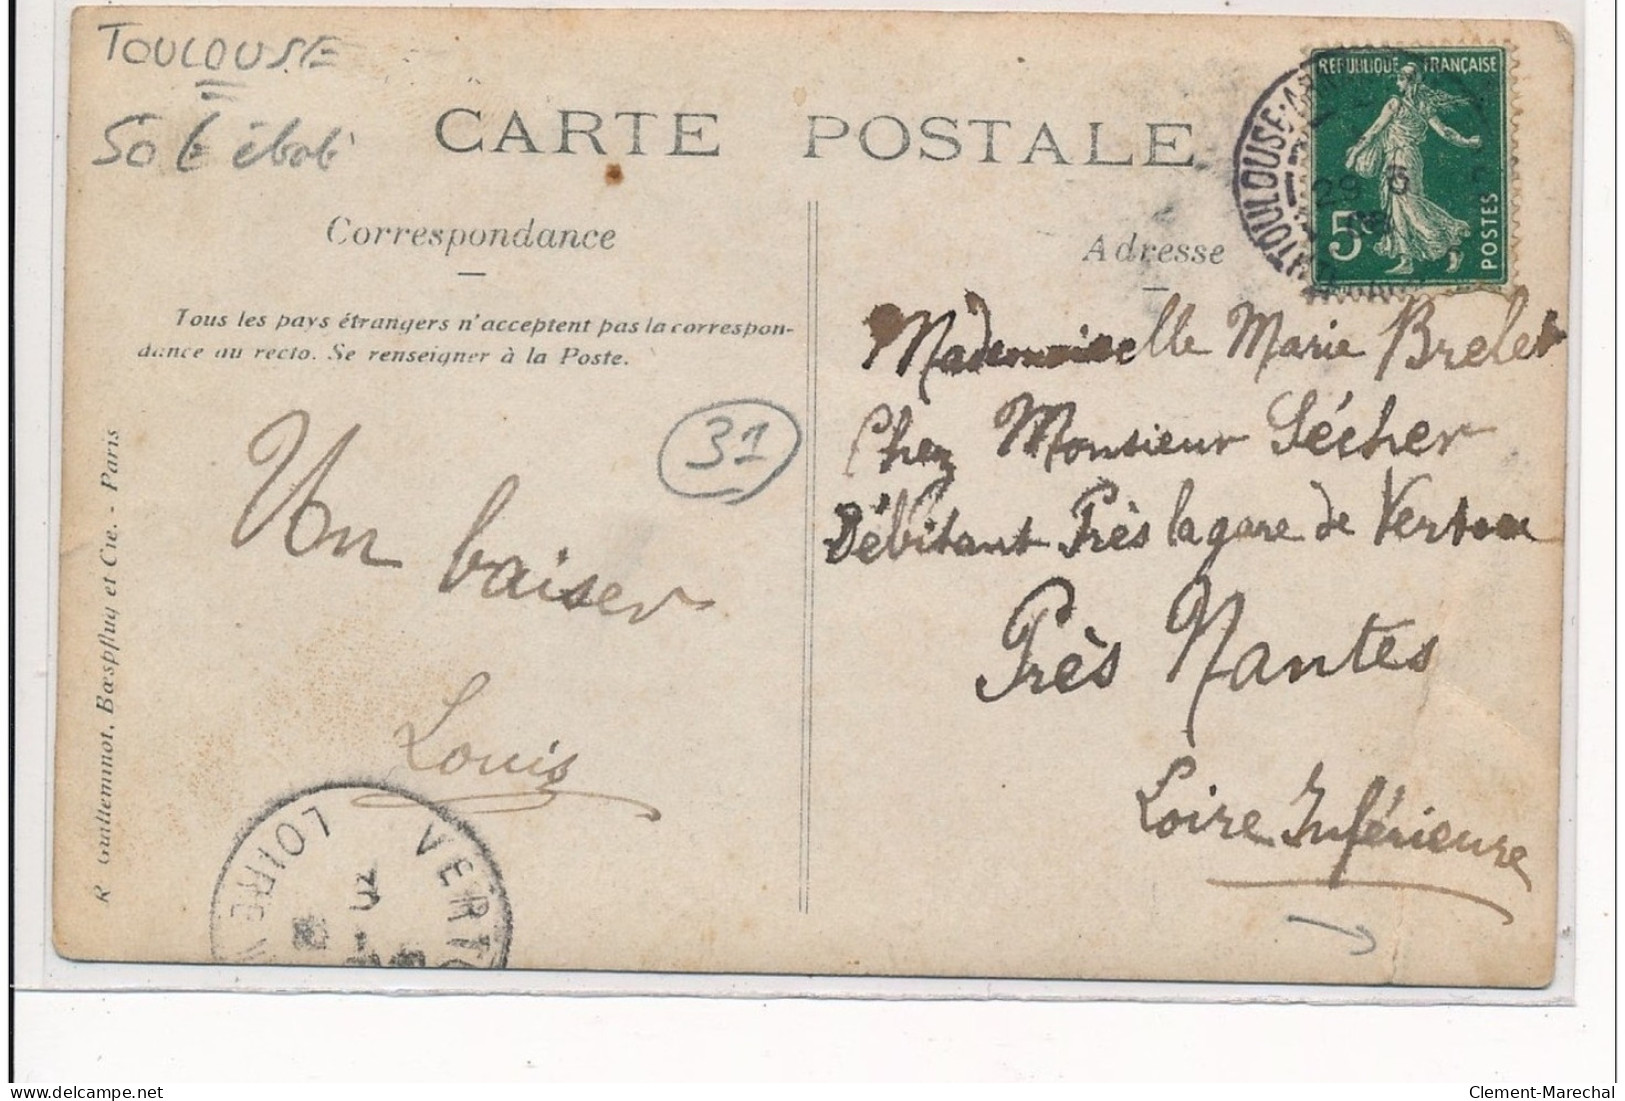 TOULOUSE
50 € état
CARTE POSTALE
RÉPUBLIQUE FRANÇAISE
5
POSTES
TOULOUSE
29 6
Correspondance
Adresse
Tous les pays étrangers n'acceptent pas la correspon-
dance au recto. Se renseigner à la Poste.
R Guilleminot, Bœspflug et Cie. - Paris
31
Un baiser
Louis
Mademoiselle Marie Brelet
Chez Monsieur Sécher
Débitant Près la gare de Vertou
Près Nantes
Loire Inférieure
VERTO
LOIRE
Clement-Marechal